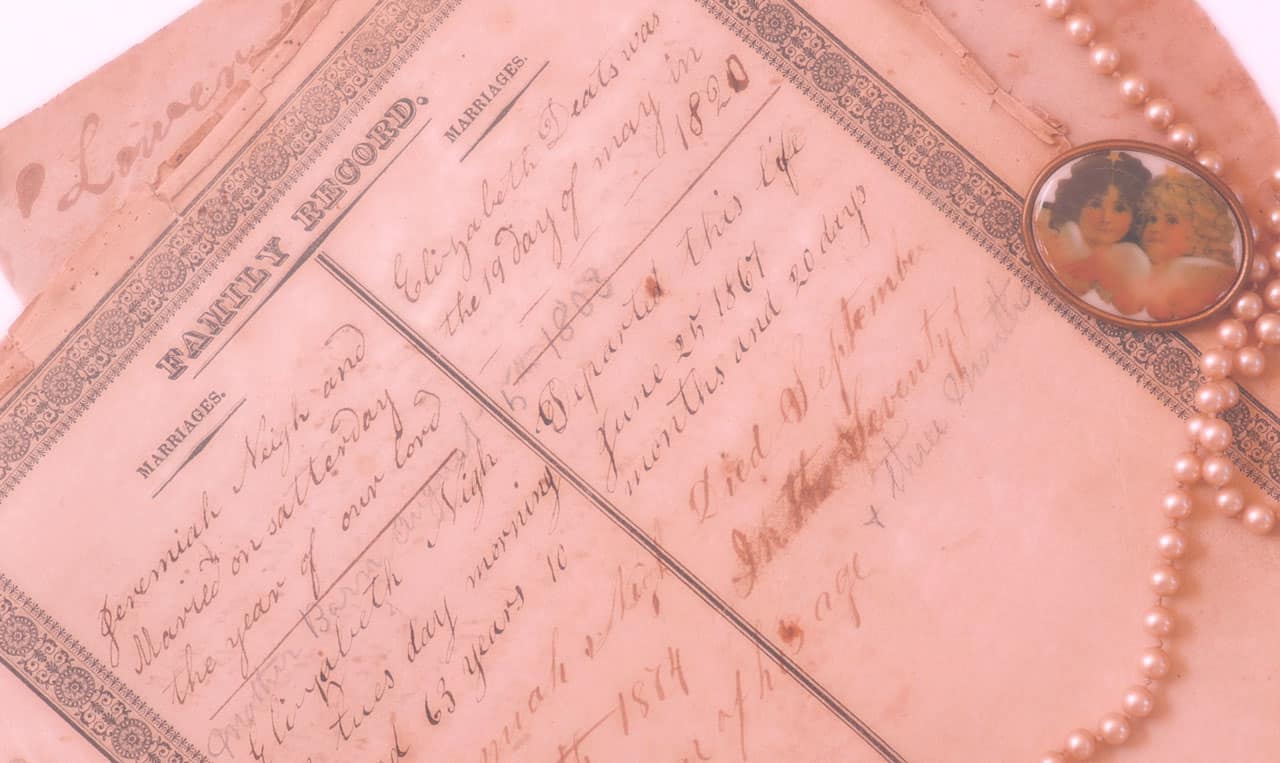 Lowen
FAMILY RECORD.
MARRIAGES.
MARRIAGES.
Jeremiah Neigh and Elizabeth Deats was
Maried on satterday the 19 day of may in
the year of our lord 1820
Born 1808
Elizabeth Nigh Departed this life
tues day morning June 25 1867
63 years 10 months and 20 days
miah Nigh Died Septembe
1874 In the Seventyf
of his age
+ three months